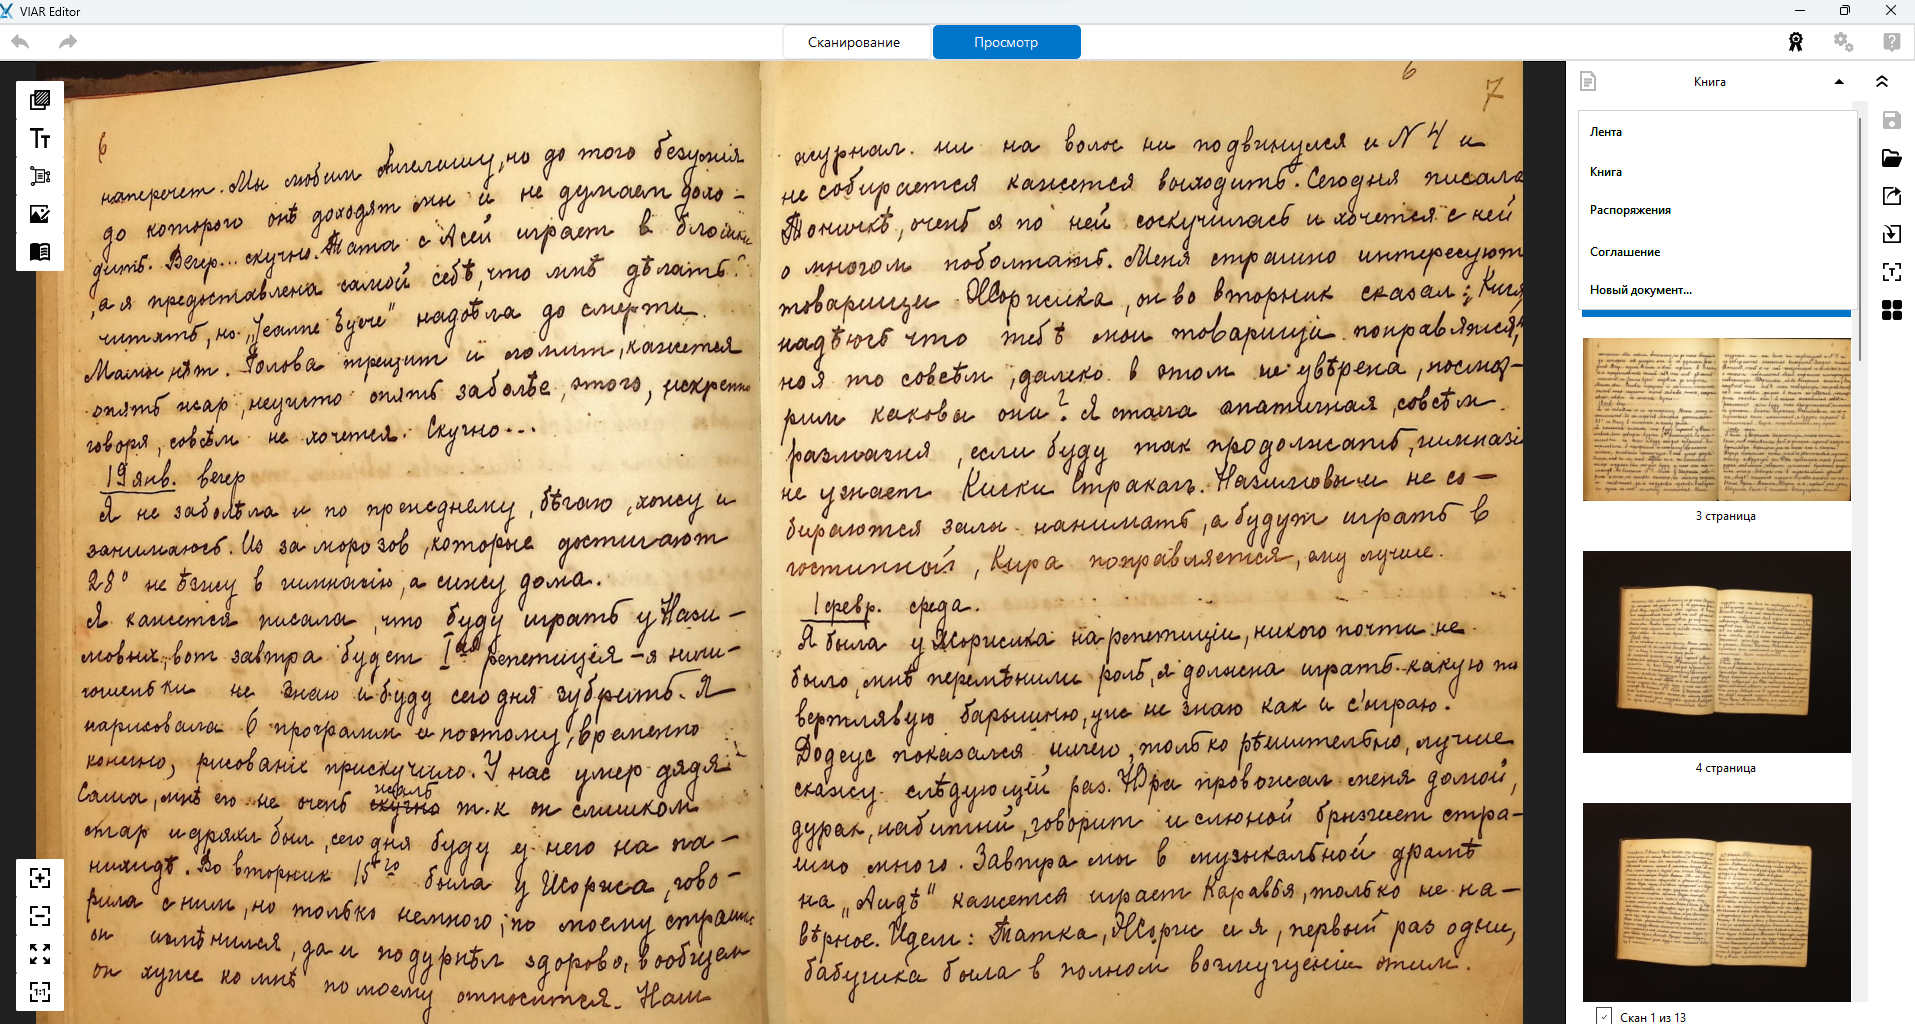 VIAR Editor
Сканирование
Просмотр
6
наперечет. Мы любим Ангелину, но до того безумія
до котораго онѣ доходят мы и не думаем дохо-
дить. Вечер... скучно. Тата с Асей играет в блошки
, а я предоставлена самой себѣ, что мнѣ дѣлать?
читать, но „Jeanne Eyre" надоѣла до смерти.
Мамы нѣт. Голова трещит и ломит, кажется
опять жар, неужто опять заболѣю, этого, искренно
говоря, совсѣм не хочется. Скучно...
19 янв. вечер
Я не заболѣла и по прежднему, бѣгаю, хожу и
занимаюсь. Из за морозов, которые достигают
28° не ѣзжу в гимназію, а сижу дома.
Я кажется писала, что буду играть у Нази-
мовых, вот завтра будет Iая репетиція – я ничи-
гошеньки не знаю и буду сегодня зубрить. Я
нарисовала 6 программ и поэтому, временно
конечно, рисованіе прискучило. У нас умер дядя
Саша, мнѣ его не очень скучно жаль т.к он слишком
стар и дряхл был, сегодня буду у него на па-
нихидѣ. Во вторник 15го была у Жориса, гово-
рила с ним, но только немного; по моему страшно
он измѣнился, да и подурнѣл здорово, вообщем
он хуже ко мнѣ по моему относится. Наш
6
7
журнал. ни на волос ни подвинулся и N 4 и
не собирается кажется выходить. Сегодня писала
Тоничкѣ, очень я по ней соскучилась и хочется с ней
о многом поболтать. Меня страшно интересуют
товарищи Жорисика, он во вторник сказал: „Кися
надѣюсь что тебѣ мои товарищи понравятся,"
но я то совсѣм, далеко в этом не увѣрена, посмот-
рим каковы они? Я стала апатичная, совсѣм
размазня, если буду так продолжать, гимназія
не узнает Киски Стракач. Назимовы и не со-
бираются залы нанимать, а будут играть в
гостинной, Кира поправляется, ему лучше.
1 февр. среда.
Я была у Жорисика на репетиціи, никого почти не
было, мнѣ перемѣнили роль, я должна играть какую то
вертлявую барышню, уже не знаю как и с'играю.
Додеус показался ничего, только рѣшительно, лучше
скажу слѣдующій раз. Юра провожал меня домой,
дурак, набитый, говорит и слюной брызжет стра-
шно много. Завтра мы в музыкальной драмѣ
на „Аидѣ" кажется играет Каравья, только не на-
вѣрное. Идем: Татка, Жорис и я, первый раз одни,
бабушка была в полном возмущеніи этим.
Книга
Лента
Книга
Распоряжения
Соглашение
Новый документ...
3 страница
4 страница
Скан 1 из 13